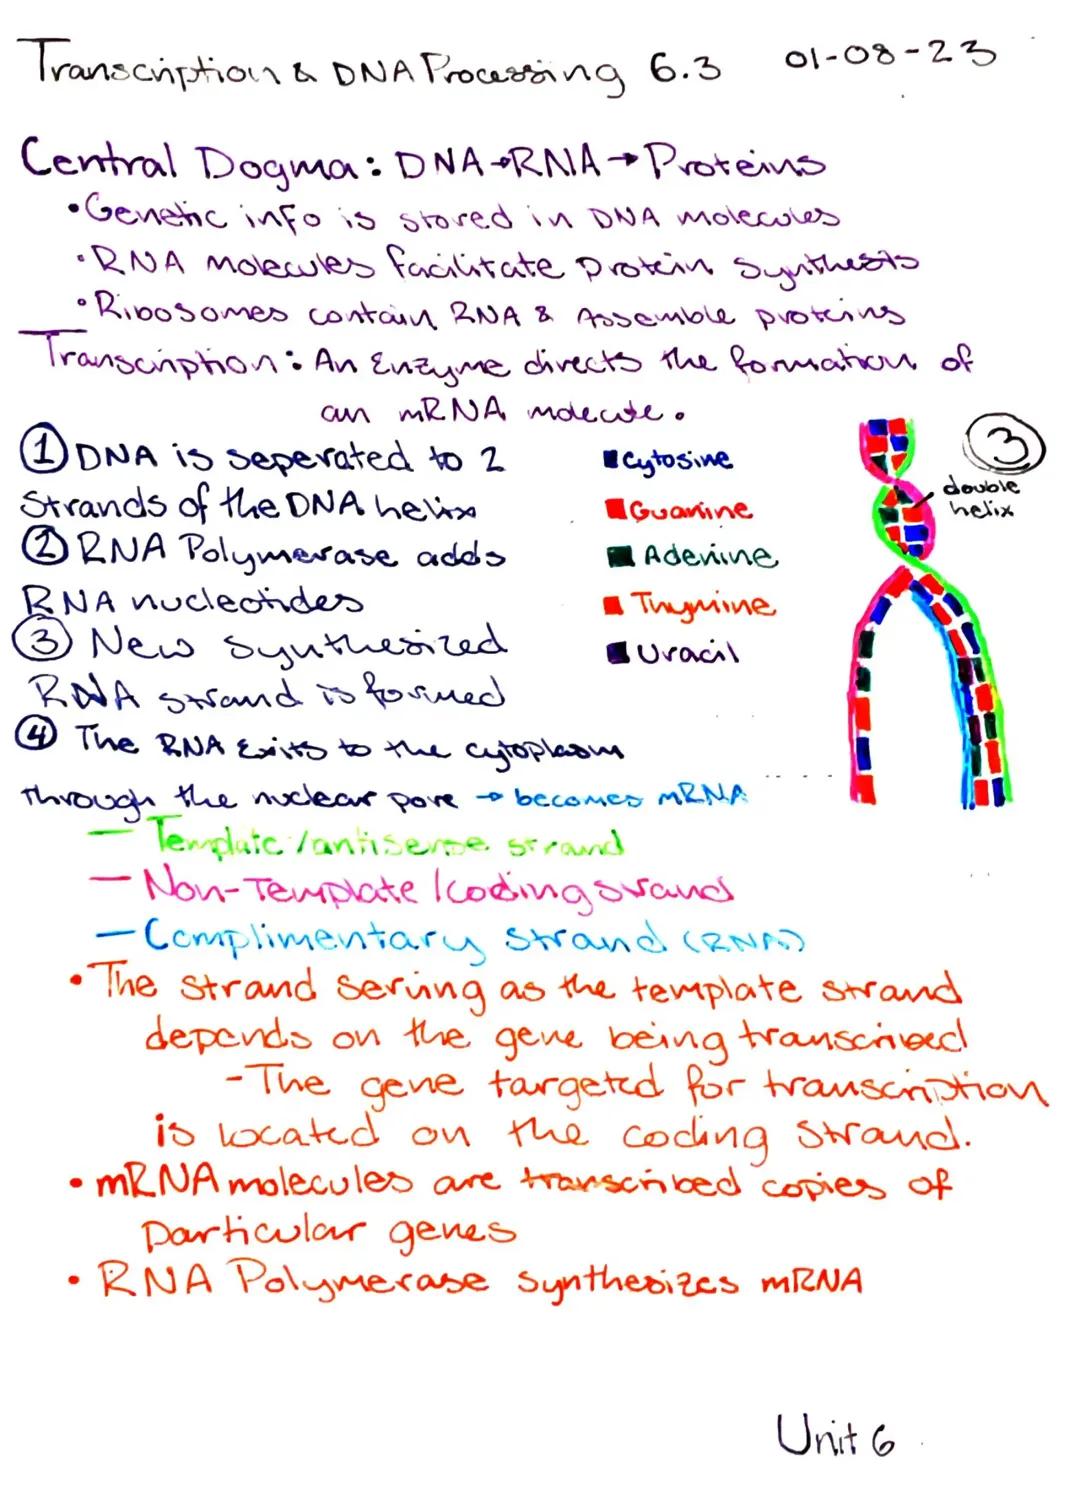 Transcription & DNA Processing 6.3 01-08-23
Central Dogma: DNA→RNA→Proteins
•Genetic info is stored in DNA molecules
•RNA molecules facilitate protein synthesis
•Ribosomes contain RNA & Assemble proteins
Transcription: An Enzyme directs the formation of
an mRNA molecule.
① DNA is seperated to 2
Strands of the DNA helix
② RNA Polymerase adds
RNA nucleotides
③ New synthesized
RNA strand is formed
④ The RNA Exits to the cytoplasm
through the nuclear pore → becomes mRNA
Cytosine
Guanine
Adenine
Thymine
Uracil
③
double
helix
— Template/antisense strand
— Non-Template/coding strand
— Complimentary strand (RNA)
• The strand serving as the template strand
depends on the gene being transcribed
-The gene targeted for transcription
is located on the coding strand.
• mRNA molecules are transcribed copies of
particular genes
• RNA Polymerase synthesizes mRNA
Unit 6